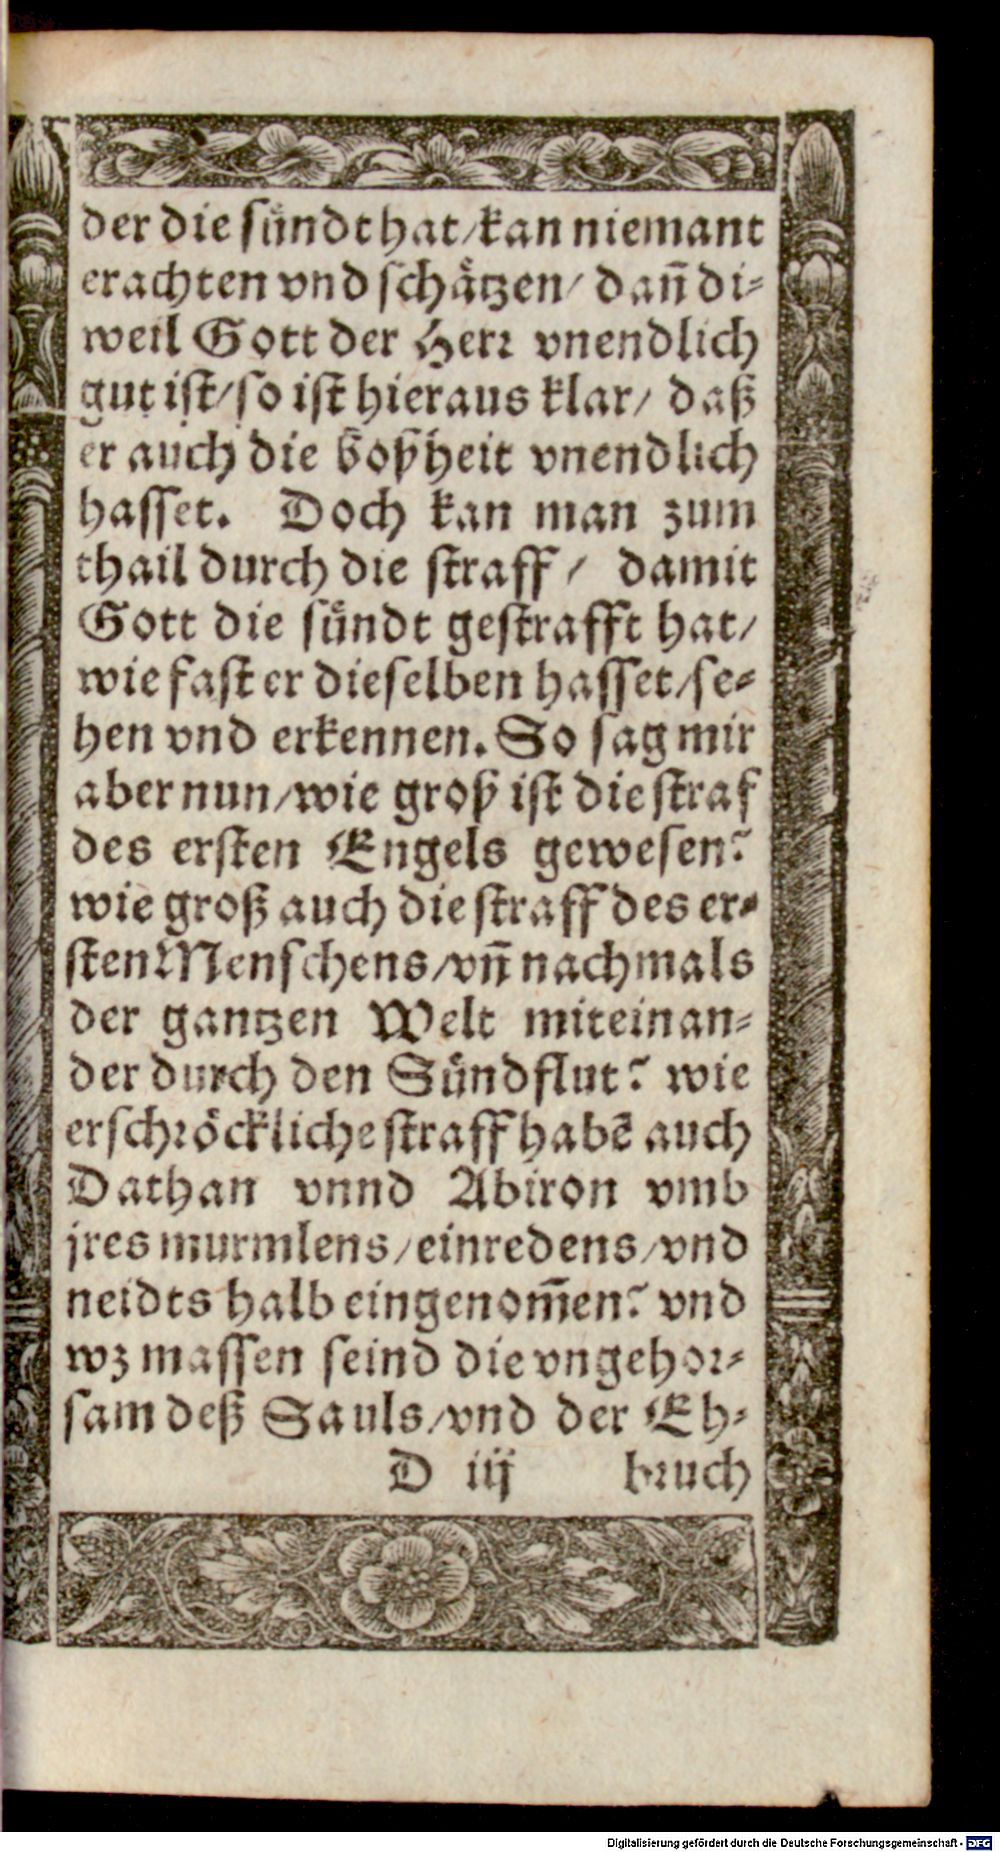 der die sündt hat/ kan niemant
erachten vnd schätzen/ dañ di-
weil Gott der Herr vnendlich
gut ist/ so ist hieraus klar/ daß
er auch die boßheit vnendlich
hasset. Doch kan man zum
thail durch die straff/ damit
Gott die sündt gestrafft hat/
wie fast er dieselben hasset/ se-
hen vnd erkennen. So sag mir
aber nun/ wie groß ist die straf
des ersten Engels gewesen?
wie groß auch die straff des er-
sten Menschens/ vñ nachmals
der gantzen Welt miteinan-
der durch den Sündflut? wie
erschröckliche straff habē auch
Dathan vnnd Abiron vmb
jres murmlens/ einredens/ vnd
neidts halb eingenom̃en? vnd
wz massen seind die vngehor-
sam deß Sauls/ vnd der Eh-
D iij bruch
Digitalisierung gefördert durch die Deutsche Forschungsgemeinschaft - DFG